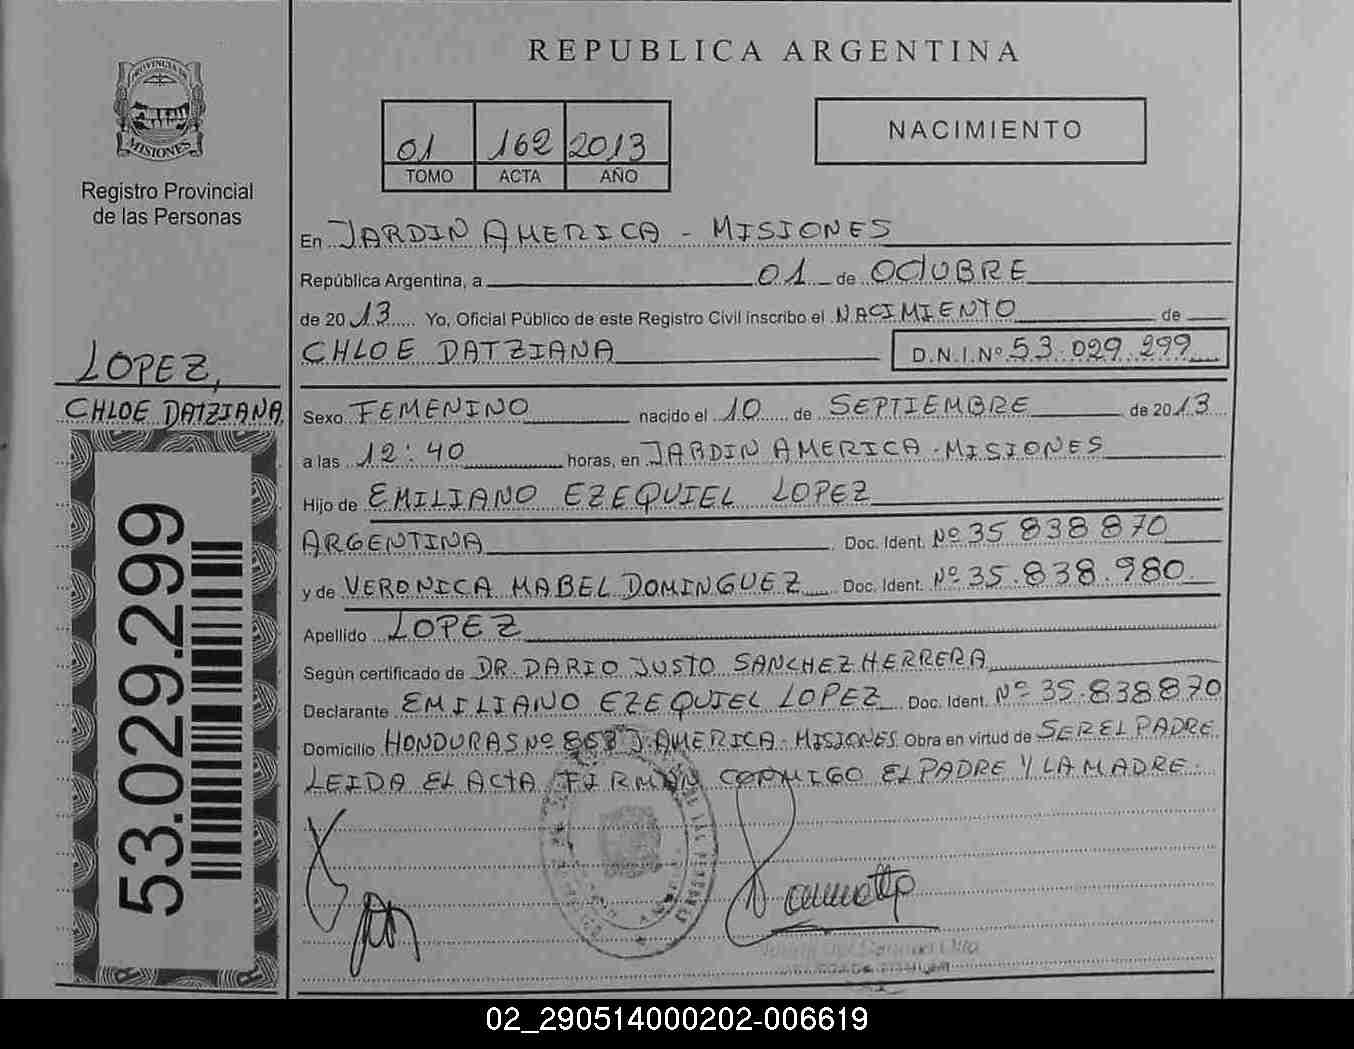 PROVINCIA DE
MISIONES
Registro Provincial
de las Personas
LOPEZ,
CHLOE DATZIANA
53.029.299
REPUBLICA ARGENTINA
01 162 2013
TOMO ACTA AÑO
NACIMIENTO
En JARDIN AMERICA - MISIONES
República Argentina, a 01 de OCTUBRE
de 2013 Yo, Oficial Público de este Registro Civil inscribo el NACIMIENTO de
CHLOE DATZIANA D.N.I.Nº 53.029.299
Sexo FEMENINO nacido el 10 de SEPTIEMBRE de 2013
a las 12:40 horas, en JARDIN AMERICA - MISIONES
Hijo de EMILIANO EZEQUIEL LOPEZ
ARGENTINA Doc. Ident. Nº 35 838 870
y de VERONICA MABEL DOMINGUEZ Doc. Ident. Nº 35.838.980
Apellido LOPEZ
Según certificado de DR. DARIO JUSTO SANCHEZ HERRERA
Declarante EMILIANO EZEQUIEL LOPEZ Doc. Ident. Nº 35.838870
Domicilio HONDURAS Nº J. AMERICA - MISIONES Obra en virtud de SER EL PADRE
LEIDA EL ACTA FIRMAN CONMIGO EL PADRE Y LA MADRE.
02_290514000202-006619